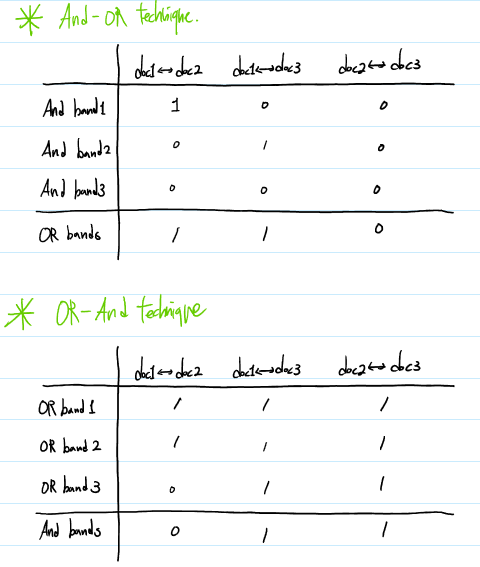 * And-OR technique.
doc1↔doc2 doc1↔doc3 doc2↔doc3
And band1 1 0 0
And band2 0 1 0
And band3 0 0 0
OR bands 1 1 0
* OR-And technique
doc1↔doc2 doc1↔doc3 doc2↔doc3
OR band 1 1 1 1
OR band 2 1 1 1
OR band 3 0 1 1
And bands 0 1 1